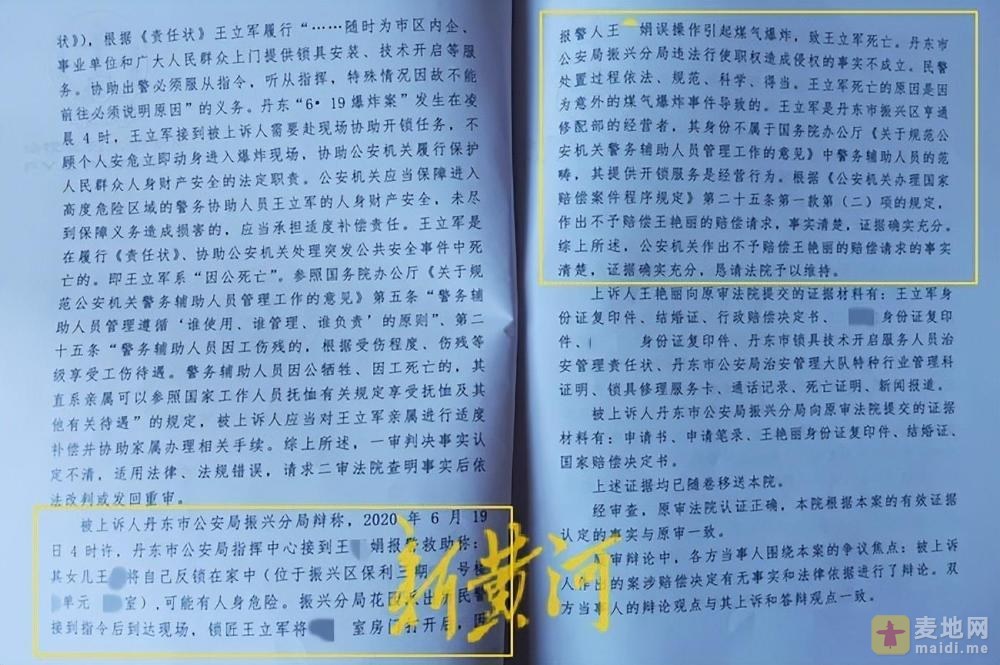 状》），根据《责任状》王立军履行“……随时为市区内企、
事业单位和广大人民群众上门提供锁具安装、技术开启等服
务。协助出警必须服从指令，听从指挥，特殊情况因故不能
前往必须说明原因”的义务。丹东“6·19爆炸案”发生在凌
晨4时，王立军接到被上诉人需要赴现场协助开锁任务，不
顾个人安危立即动身进入爆炸现场，协助公安机关履行保护
人民群众人身财产安全的法定职责。公安机关应当保障进入
高度危险区域的警务协助人员王立军的人身财产安全，未尽
到保障义务造成损害的，应当承担适度补偿责任。王立军是
在履行《责任状》、协助公安机关处理突发公共安全事件中死
亡的。即王立军系“因公死亡”。参照国务院办公厅《关于规
范公安机关警务辅助人员管理工作的意见》第五条“警务辅
助人员管理遵循‘谁使用、谁管理、谁负责’的原则”、第二
十五条“警务辅助人员因工伤残的，根据受伤程度、伤残等
级享受工伤待遇。警务辅助人员因公牺牲、因工死亡的，其
直系亲属可以参照国家工作人员抚恤有关规定享受抚恤及其
他有关待遇”的规定，被上诉人应当对王立军亲属进行适度
补偿并协助家属办理相关手续。综上所述，一审判决事实认
定不清，适用法律、法规错误，请求二审法院查明事实后依
法改判或发回重审。
被上诉人丹东市公安局振兴分局辩称，2020年6月19
日4时许，丹东市公安局指挥中心接到王 娟报警救助称：
其女儿王 将自己反锁在家中（位于振兴区保利三期 号楼
单元 室），可能有人身危险。振兴分局花园派出所民警
接到指令后到达现场，锁匠王立军将 室房门打开后，因
报警人王 娟误操作引起煤气爆炸，致王立军死亡。丹东市
公安局振兴分局违法行使职权造成侵权的事实不成立。民警
处置过程依法、规范、科学、得当。王立军死亡的原因是因
为意外的煤气爆炸事件导致的。王立军是丹东市振兴区亨通
修配部的经营者，其身份不属于国务院办公厅《关于规范公
安机关警务辅助人员管理工作的意见》中警务辅助人员的范
畴，其提供开锁服务是经营行为。根据《公安机关办理国家
赔偿案件程序规定》第二十五条第一款第（二）项的规定，
作出不予赔偿王艳丽的赔偿请求，事实清楚，证据确实充分。
综上所述，公安机关作出不予赔偿王艳丽的赔偿请求的事实
清楚，证据确实充分，恳请法院予以维持。
上诉人王艳丽向原审法院提交的证据材料有：王立军身
份证复印件、结婚证、行政赔偿决定书、 身份证复印
件、 身份证复印件、丹东市锁具技术开启服务人员治
安管理责任状、丹东市公安局治安管理大队特种行业管理科
证明、锁具修理服务卡、通话记录、死亡证明、新闻报道。
被上诉人丹东市公安局振兴分局向原审法院提交的证据
材料有：申请书、申请笔录、王艳丽身份证复印件、结婚证、
国家赔偿决定书。
上述证据均已随卷移送本院。
经审查，原审法院认证正确，本院根据本案的有效证据
认定的事实与原审一致。
审辩论中，各方当事人围绕本案的争议焦点：被上诉
人作出的案涉赔偿决定有无事实和法律依据进行了辩论。双
方当事人的辩论观点与其上诉和答辩观点一致。
新黄河
麦地网
maidi.me